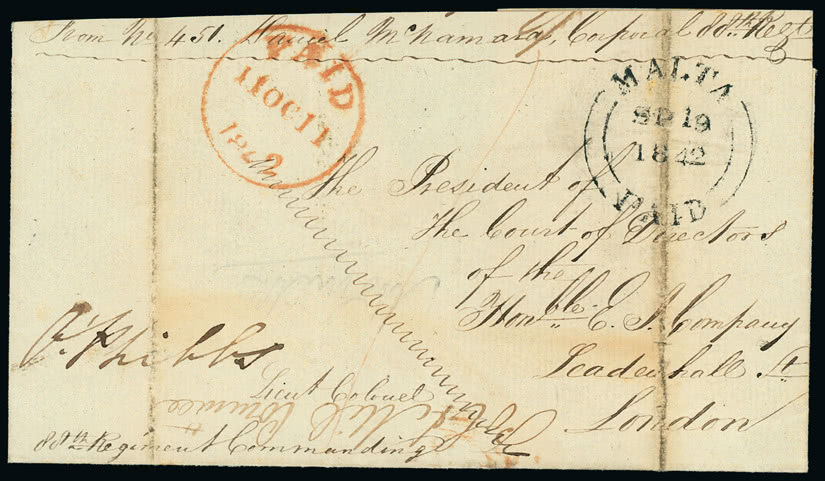 From No 451. Daniel McNamara, Corporal 88th Regt
PAID
11OC11
1842
MALTA
SP 19
1842
PAID
The President of
The Court of Directors
of the
Honble. E. I. Company
Leadenhall St
London
Phibbs
Lieut Colonel
88th Regiment Commanding